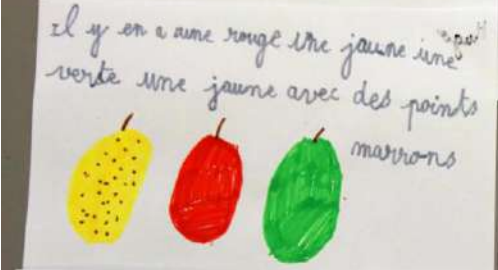 Il y en a une rouge une jaune une
verte une jaune avec des points
marrons